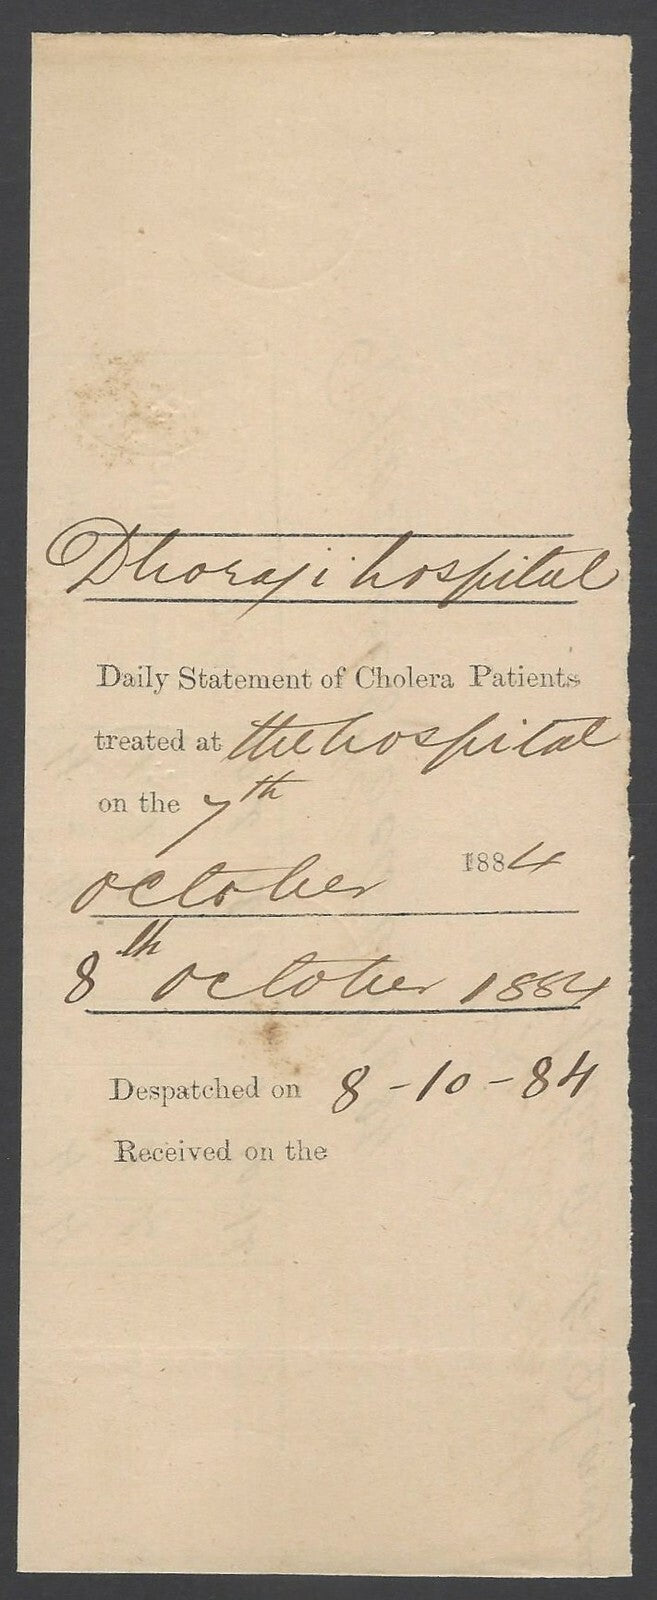 Dhoraji hospital
Daily Statement of Cholera Patients
treated at the hospital
on the 7th
october 1884
8th october 1884
Despatched on 8-10-84
Received on the